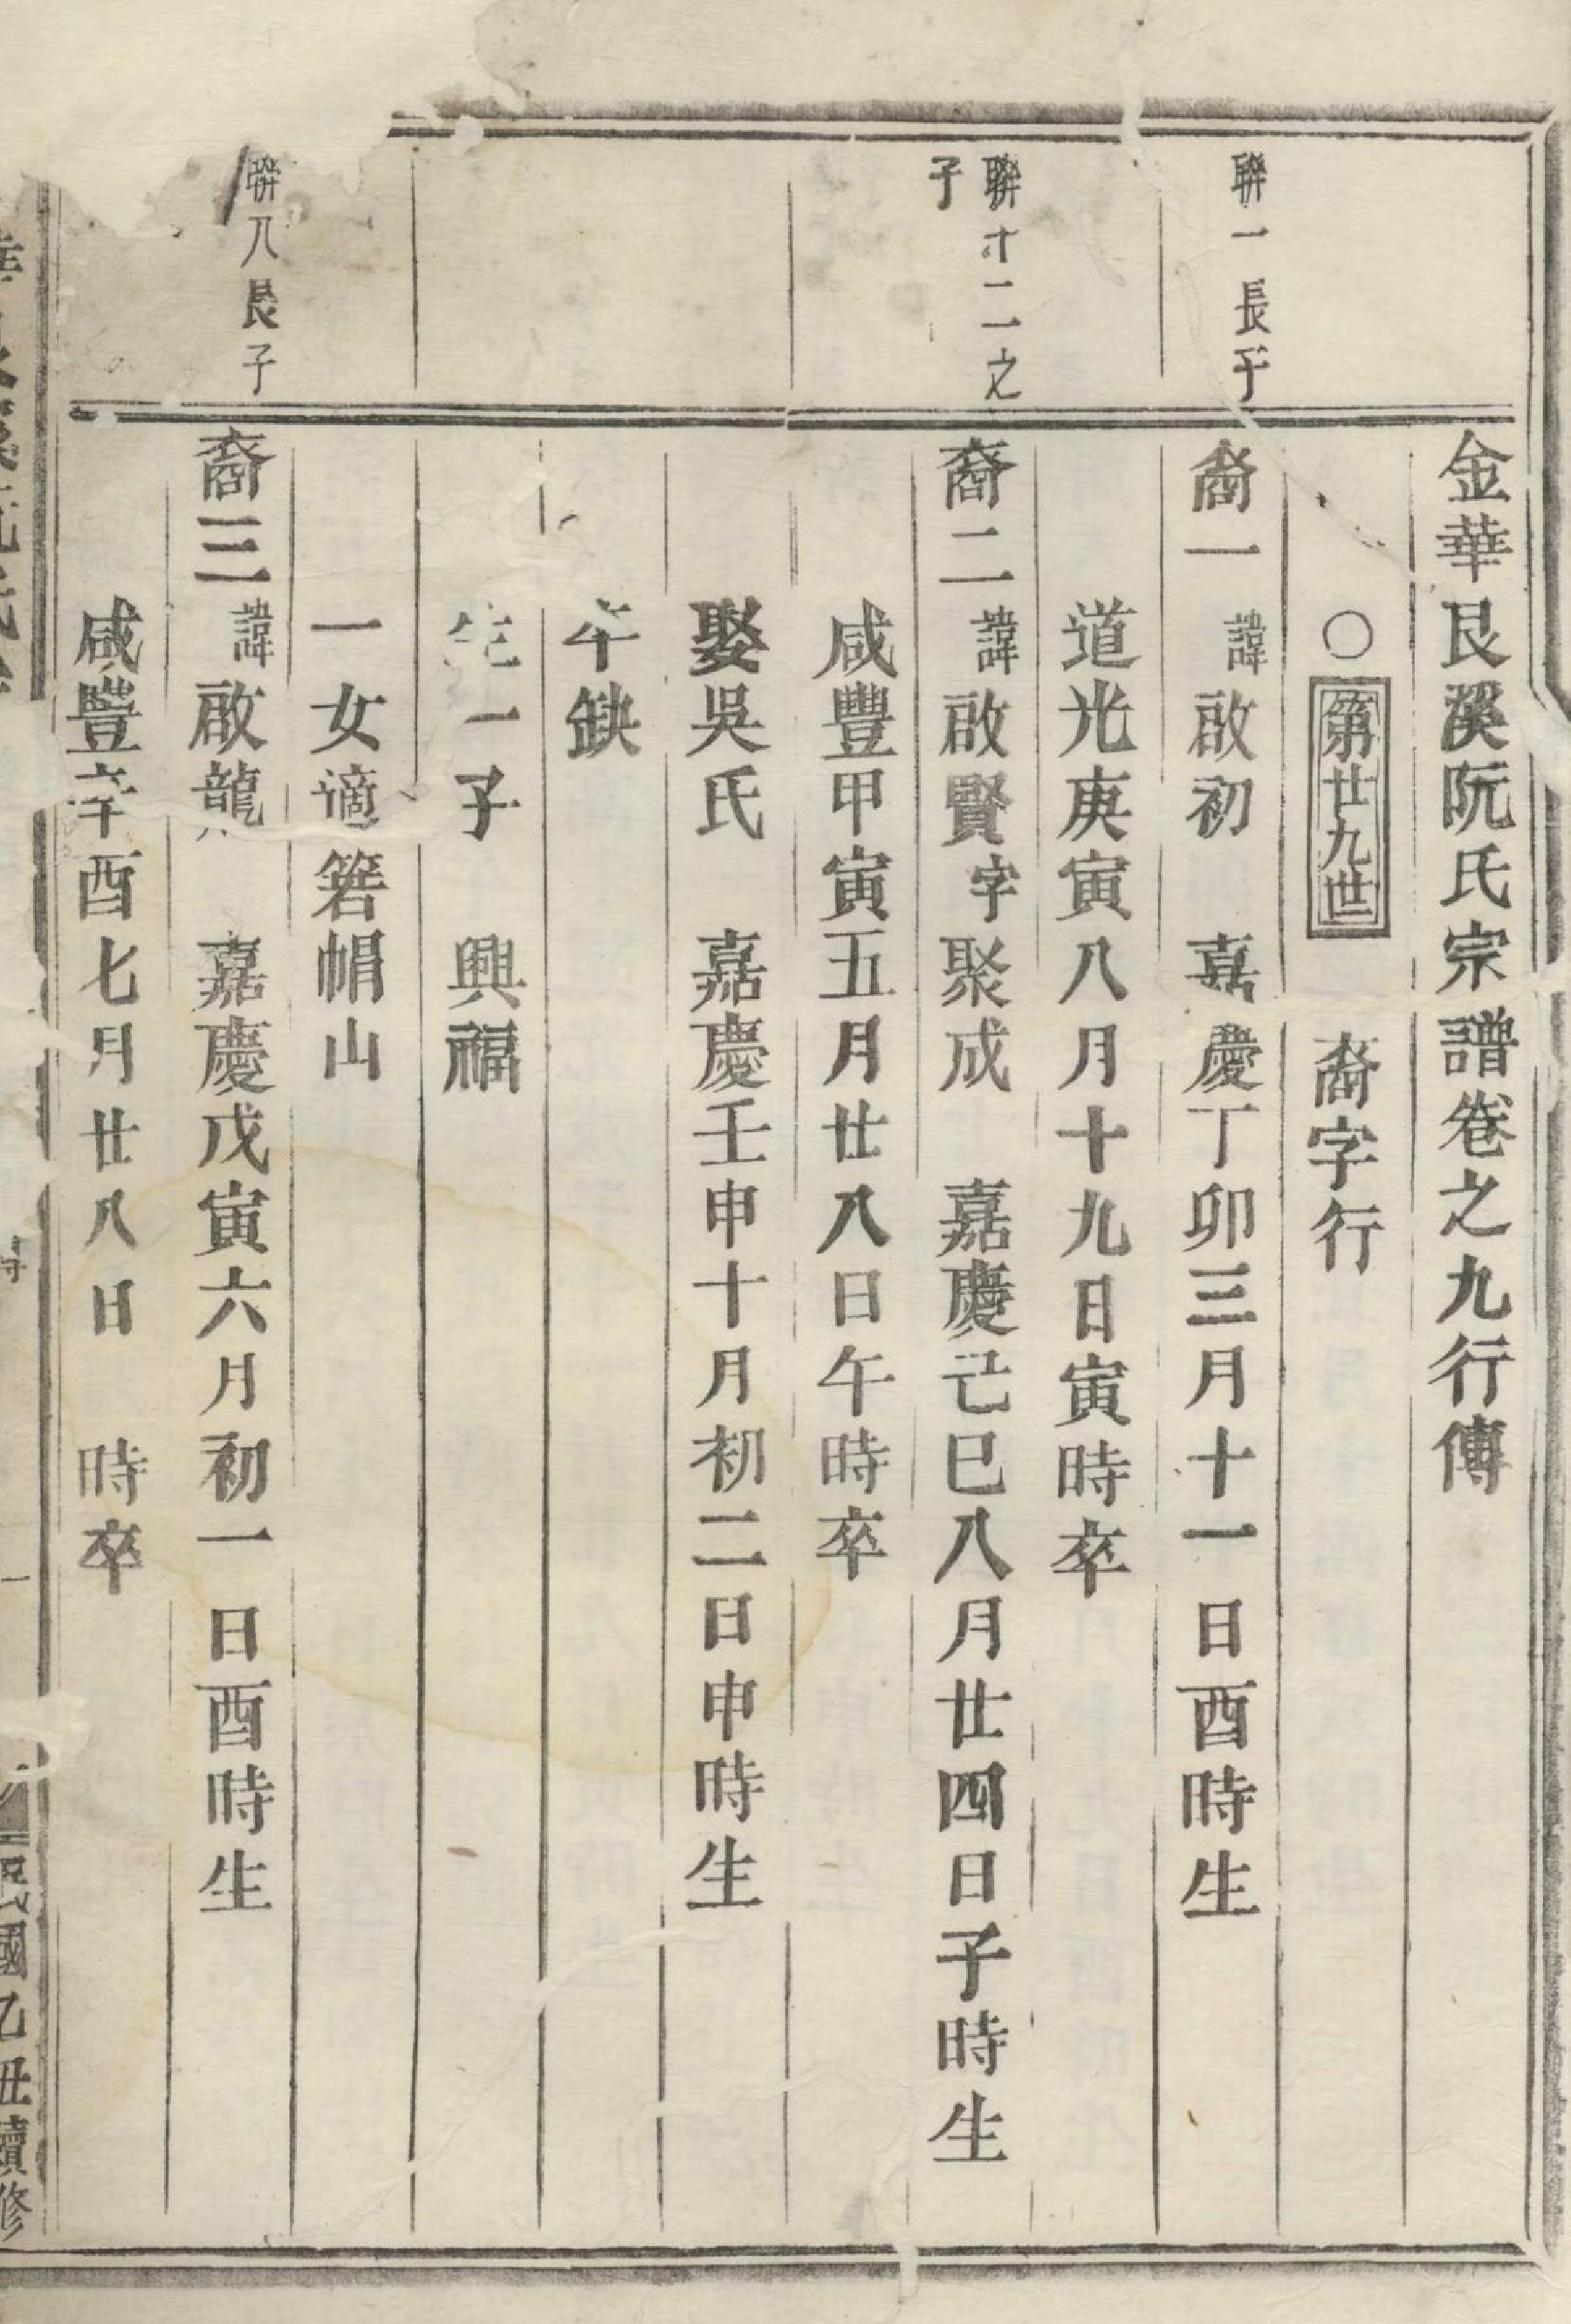 金華艮溪阮氏宗譜卷之九行傳
○第廿九世 裔字行
聮一長子
裔一 諱啟初 嘉慶丁卯三月十一日酉時生
道光庚寅八月十九日寅時卒
聮十二之
子
裔二諱啟賢字聚成 嘉慶己巳八月廿四日子時生
咸豐甲寅五月廿八日午時卒
娶吳氏 嘉慶壬申十月初二日申時生
卒缺
生一子 興福
一女適箬帽山
聮八長子
裔三諱啟龍 嘉慶戊寅六月初一日酉時生
咸豐辛酉七月廿八日 時卒
民國乙丑續修